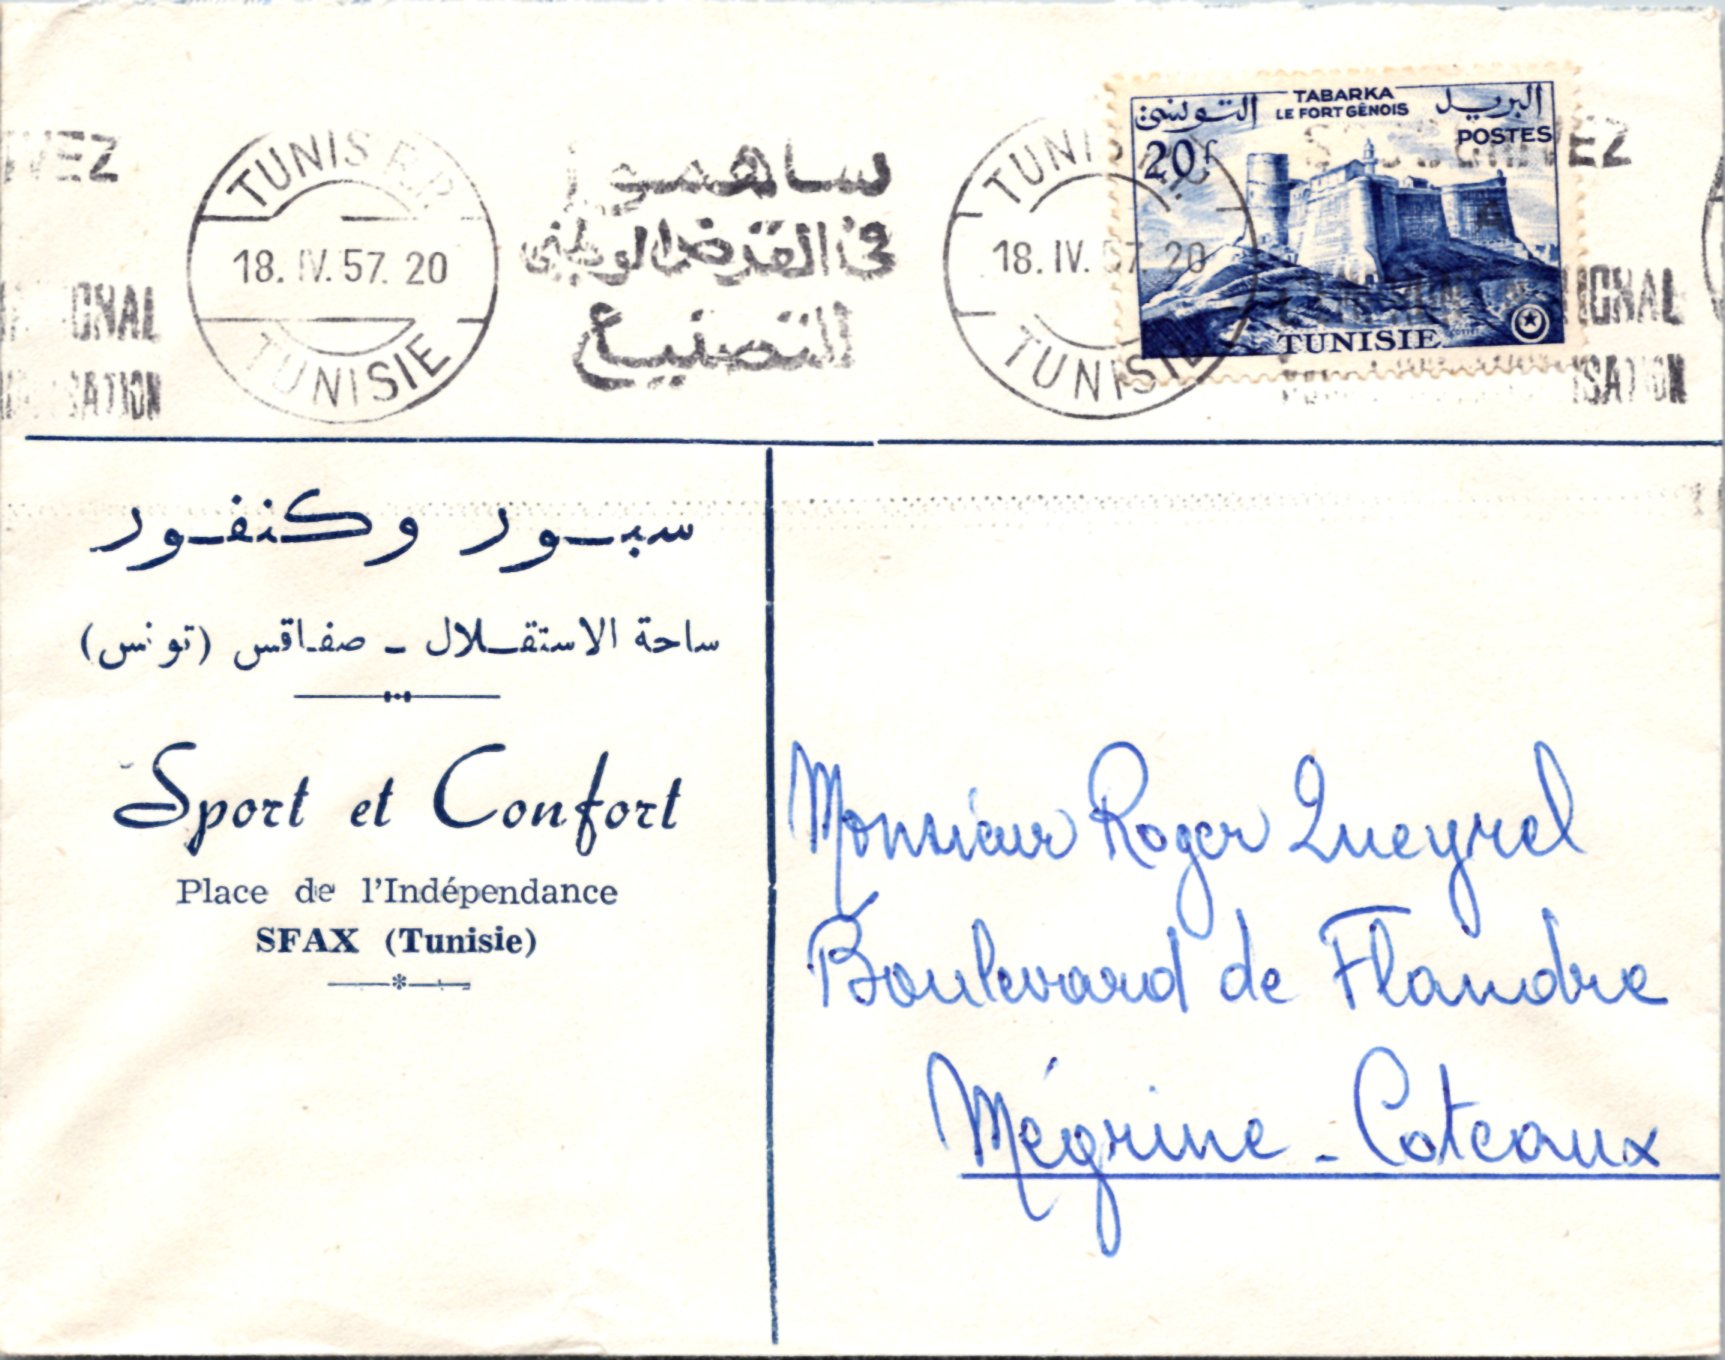 VEZ
TUNIS R.P.
18. IV. 57. 20
TUNISIE
ساهموا
في القرض الوطني
للتصنيع
18. IV. 57. 20
TUNISIE
EZ
IONAL
ISATION
ONAL
SATION
التونسي
TABARKA
LE FORT GÊNOIS
البريد
POSTES
20f
TUNISIE
سبور وكنفور
ساحة الاستقلال - صفاقس (تونس)
Sport et Confort
Place de l'Indépendance
SFAX (Tunisie)
Monsieur Roger Queyrel
Boulevard de Flandre
Mégrine - Coteaux